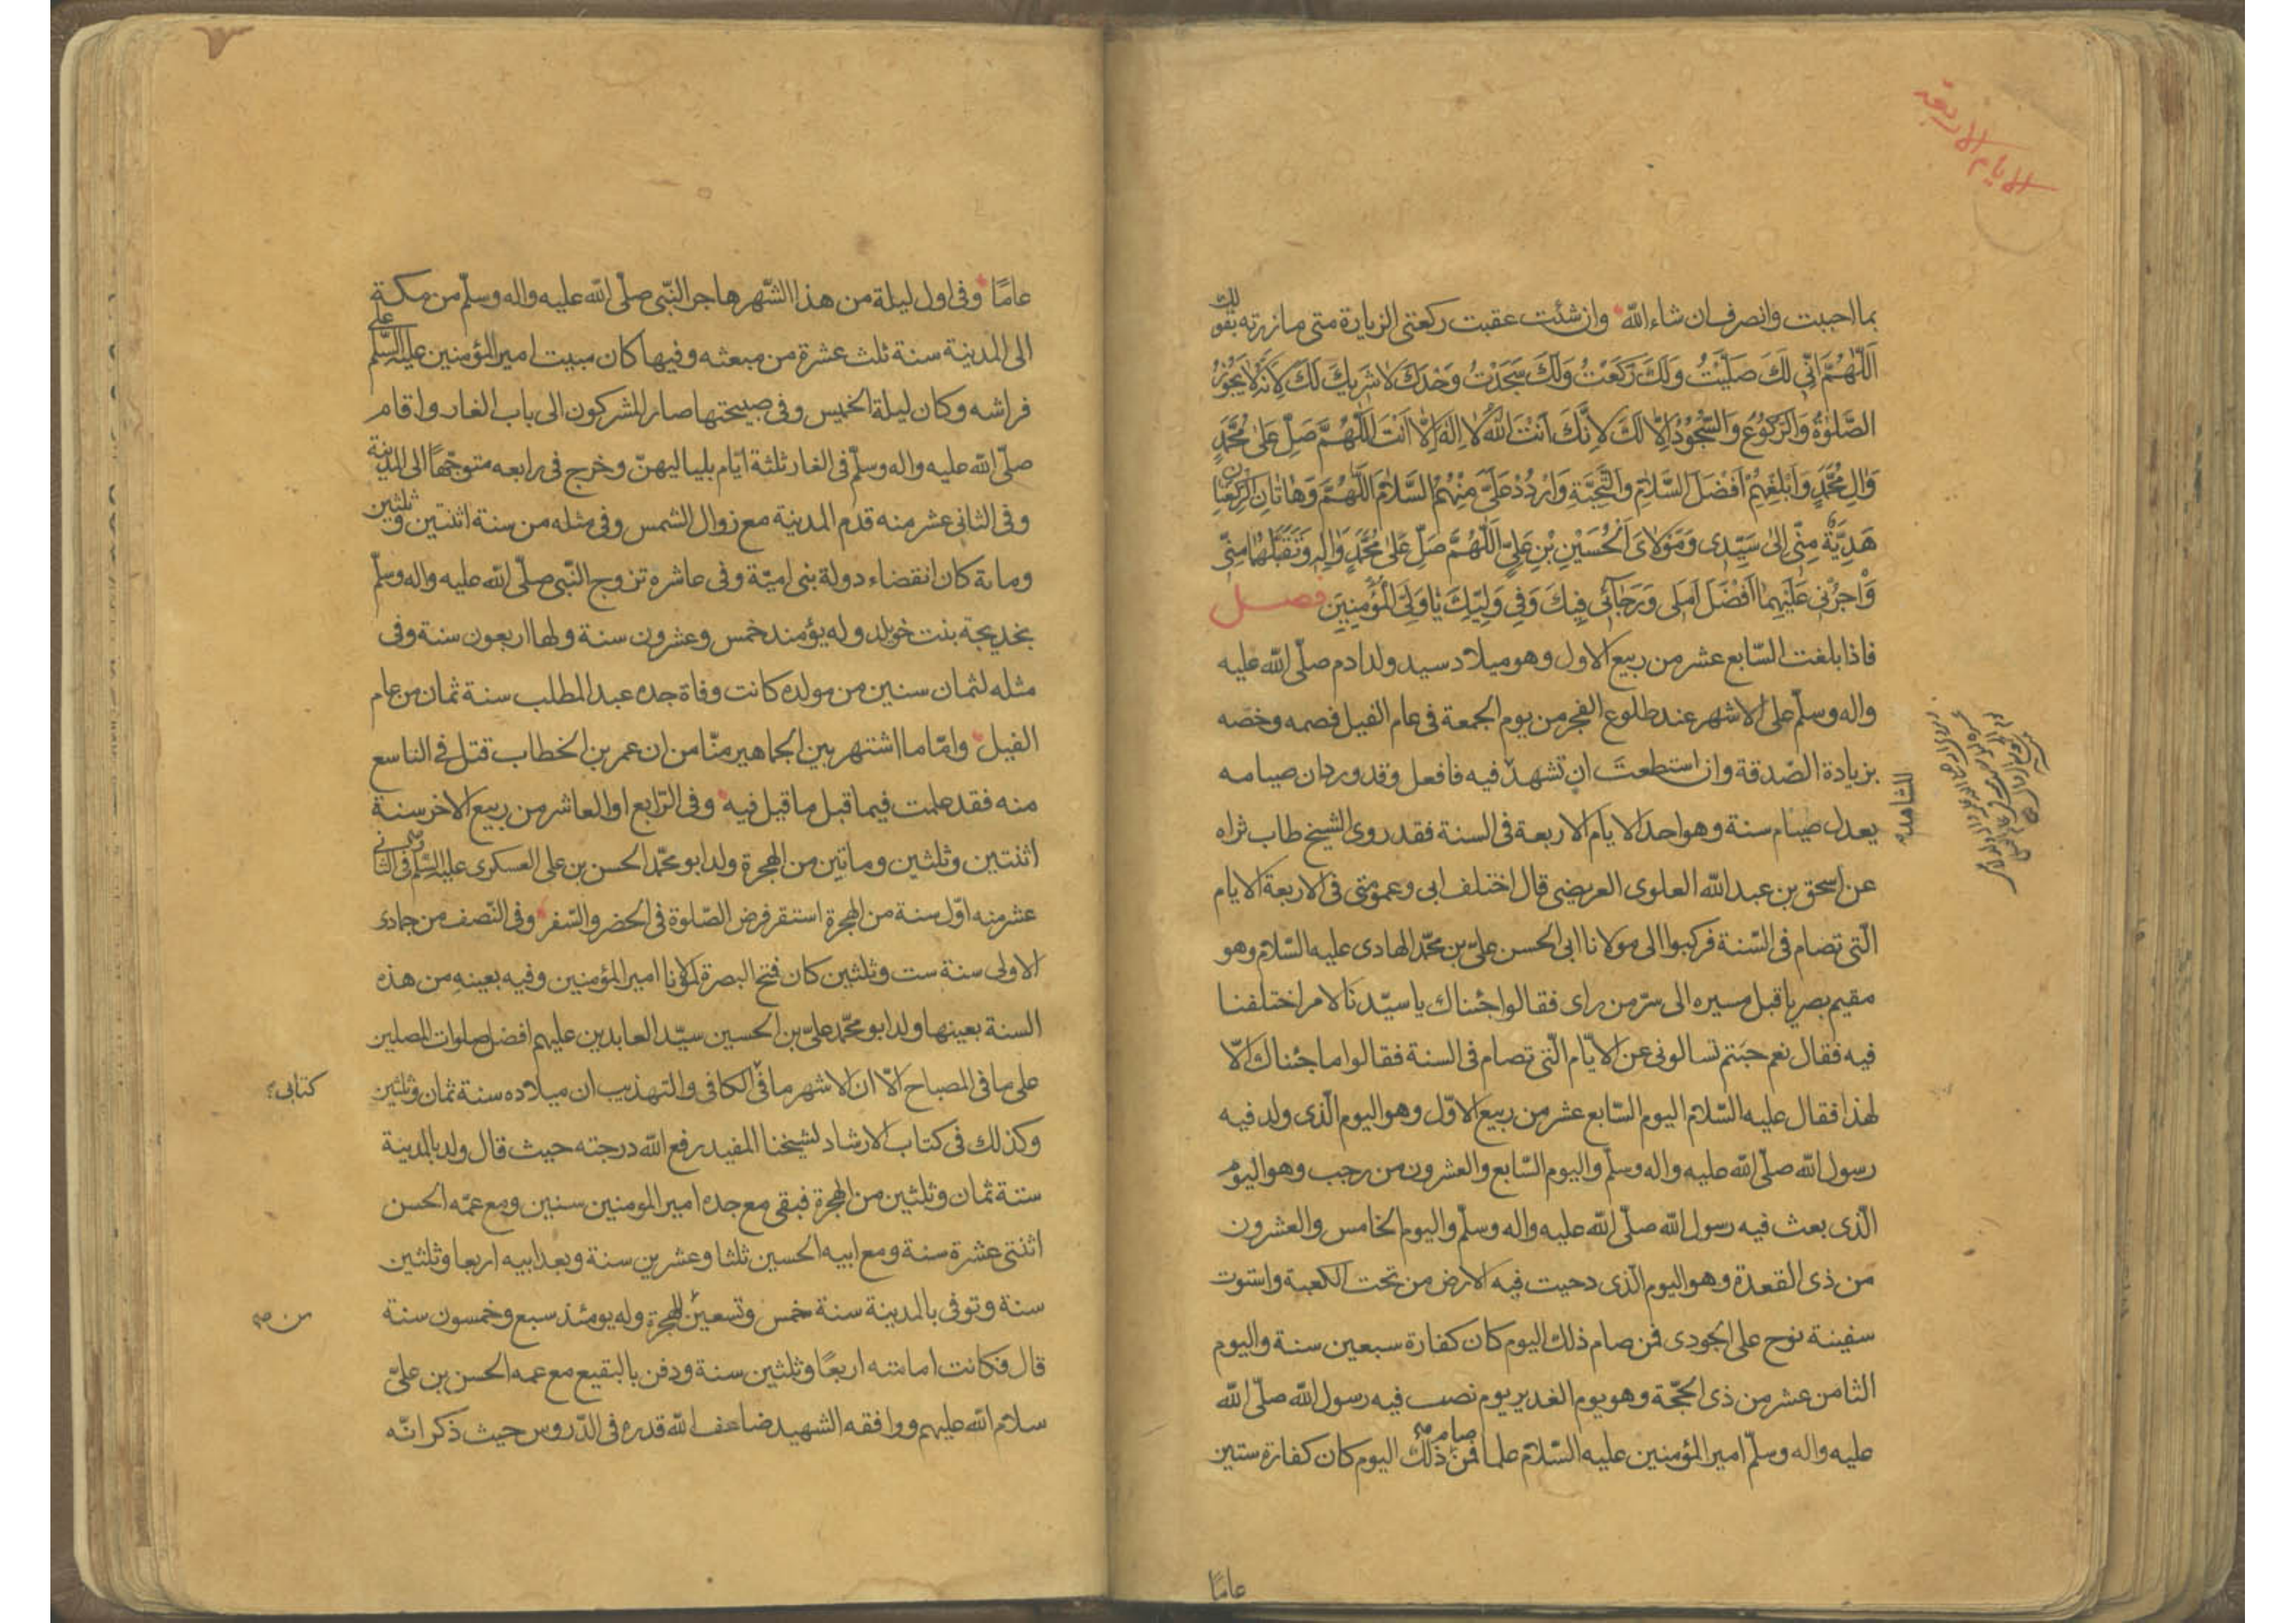 الايام الاربعة
بما احببت وانصرف ان شاء الله وان شئت عقبت ركعتى الزيارة متى ما زرته بقولك
اَللّٰهُمَّ اِنّى لَكَ صَلَّيْتُ وَلَكَ رَكَعْتُ وَلَكَ سَجَدْتُ وَحْدَكَ لاشَرِيكَ لَكَ لِاَنَّهُ لا يَجُوزُ
الصَّلوٰةُ وَالرُّكُوعُ وَالسُّجُودُ اِلّا لَكَ لِاَنَّكَ اَنْتَ اللهُ لا اِلهَ اِلّا اَنْتَ اَللّٰهُمَّ صَلِّ عَلى مُحَمَّدٍ
وَالِ مُحَمَّدٍ وَاَبْلِغْهُمْ اَفْضَلَ السَّلامِ وَالتَّحِيَّةِ وَارْدُدْ عَلَىَّ مِنْهُمُ السَّلامَ اَللّٰهُمَّ وَهاتانِ الرَّكْعَتانِ
هَدِيَّةٌ مِنّى اِلى سَيِّدى وَمَوْلاىَ اَلْحُسَيْنِ بْنِ عَلِيٍّ اَللّٰهُمَّ صَلِّ عَلى مُحَمَّدٍ وَالِهِ وَتَقَبَّلْهُما مِنّى
وَاْجُرْنى عَلَيْهِما اَفْضَلَ اَمَلى وَرَجائى فِيكَ وَفى وَلِيِّكَ يا وَلِىَّ الْمُؤْمِنِينَ فصل
فاذا بلغت السّابع عشر من ربيع الاول وهو ميلاد سيد ولد ادم صلّى الله عليه
واله وسلّم على الاشهر عند طلوع الفجر من يوم الجمعة فى عام الفيل فصمه وخصه
بزيادة الصّدقة وان استطعت ان تشهد فيه فافعل وقد ورد ان صيامه
المشاهد
يعدل صيام سنة وهو احد الايام الاربعة فى السنة فقد روى الشيخ طاب ثراه
عن اسحق بن عبد الله العلوى العريضى قال اختلف ابى وعمومتى فى الاربعة الايام
الّتى تصام فى السّنة فركبوا الى مولانا ابى الحسن علىّ بن محمّد الهادى عليه السّلام وهو
مقيم بصريا قبل مسيره الى سرّ من راى فقالوا جئناك يا سيّدنا لامر اختلفنا
فيه فقال نعم جئتم تسالونى عن الايّام الّتى تصام فى السنة فقالوا ما جئناك الّا
لهذا فقال عليه السّلام اليوم السّابع عشر من ربيع الاوّل وهو اليوم الّذى ولد فيه
رسول الله صلّى الله عليه واله وسلّم واليوم السّابع والعشرون من رجب وهو اليوم
الّذى بعث فيه رسول الله صلّى الله عليه واله وسلّم واليوم الخامس والعشرون
من ذى القعدة وهو اليوم الّذى دحيت فيه الارض من تحت الكعبة واستوت
سفينة نوح على الجودى فمن صام ذلك اليوم كان كفارة سبعين سنة واليوم
الثامن عشر من ذى الحجّة وهو يوم الغدير يوم نصب فيه رسول الله صلّى الله
عليه واله وسلّم امير المؤمنين عليه السّلام علما فمن صام ذلك اليوم كان كفارة ستين
عامًا
عامًا وفى اول ليلة من هذا الشّهر هاجر النّبى صلّى الله عليه واله وسلّم من مكة
الى المدينة سنة ثلث عشرة من مبعثه وفيها كان مبيت امير المؤمنين عليه السّلم على
فراشه وكان ليلة الخميس وفى صبيحتها صار المشركون الى باب الغار واقام
صلّى الله عليه واله وسلّم فى الغار ثلثة ايّام بلياليهنّ وخرج فى رابعه متوجّهًا الى المدينة
وفى الثانى عشر منه قدم المدينة مع زوال الشمس وفى مثله من سنة اثنتين وثلثين
ومائة كان انقضاء دولة بنى اميّة وفى عاشره تزوج النّبى صلّى الله عليه واله وسلّم
بخديجة بنت خويلد وله يؤمئذ خمس وعشرون سنة ولها اربعون سنة وفى
مثله لثمان سنين من مولده كانت وفاة جده عبد المطلب سنة ثمان من عام
الفيل وامّا ما اشتهر بين الجماهير منّا من ان عمر بن الخطاب قتل فى التاسع
منه فقد علمت فيما قبل ما قيل فيه وفى الرّابع او العاشر من ربيع الاخر سنة
اثنتين وثلثين وماتين من الهجرة ولد ابو محمّد الحسن بن على العسكرى عليه السّلم وفى الثانى
عشر منه اوّل سنة من الهجرة استقر فرض الصّلوة فى الحضر والسّفر وفى النّصف من جمادى
الاولى سنة ست وثلثين كان فتح البصرة لمولانا امير المؤمنين وفيه بعينه من هذه
السنة بعينها ولد ابو محمّد علىّ بن الحسين سيّد العابدين عليهم افضل صلوات المصلين
على ما فى المصباح الّا ان الاشهر ما فى الكافى والتهذيب ان ميلاده سنة ثمان وثلثين
كتابى
وكذلك فى كتاب الارشاد لشيخنا المفيد رفع الله درجته حيث قال ولد بالمدينة
سنة ثمان وثلثين من الهجرة فبقى مع جده امير المومنين سنين ومع عمّه الحسن
اثنتى عشرة سنة ومع ابيه الحسين ثلثا وعشرين سنة وبعد ابيه اربعا وثلثين
سنة وتوفى بالمدينة سنة خمس وتسعين للهجرة وله يومئذ سبع وخمسون سنة
من صح
قال فكانت امامته اربعًا وثلثين سنة ودفن بالبقيع مع عمه الحسن بن علىّ
سلام الله عليهم ووافقه الشهيد ضاعف الله قدره فى الدّروس حيث ذكر انّه